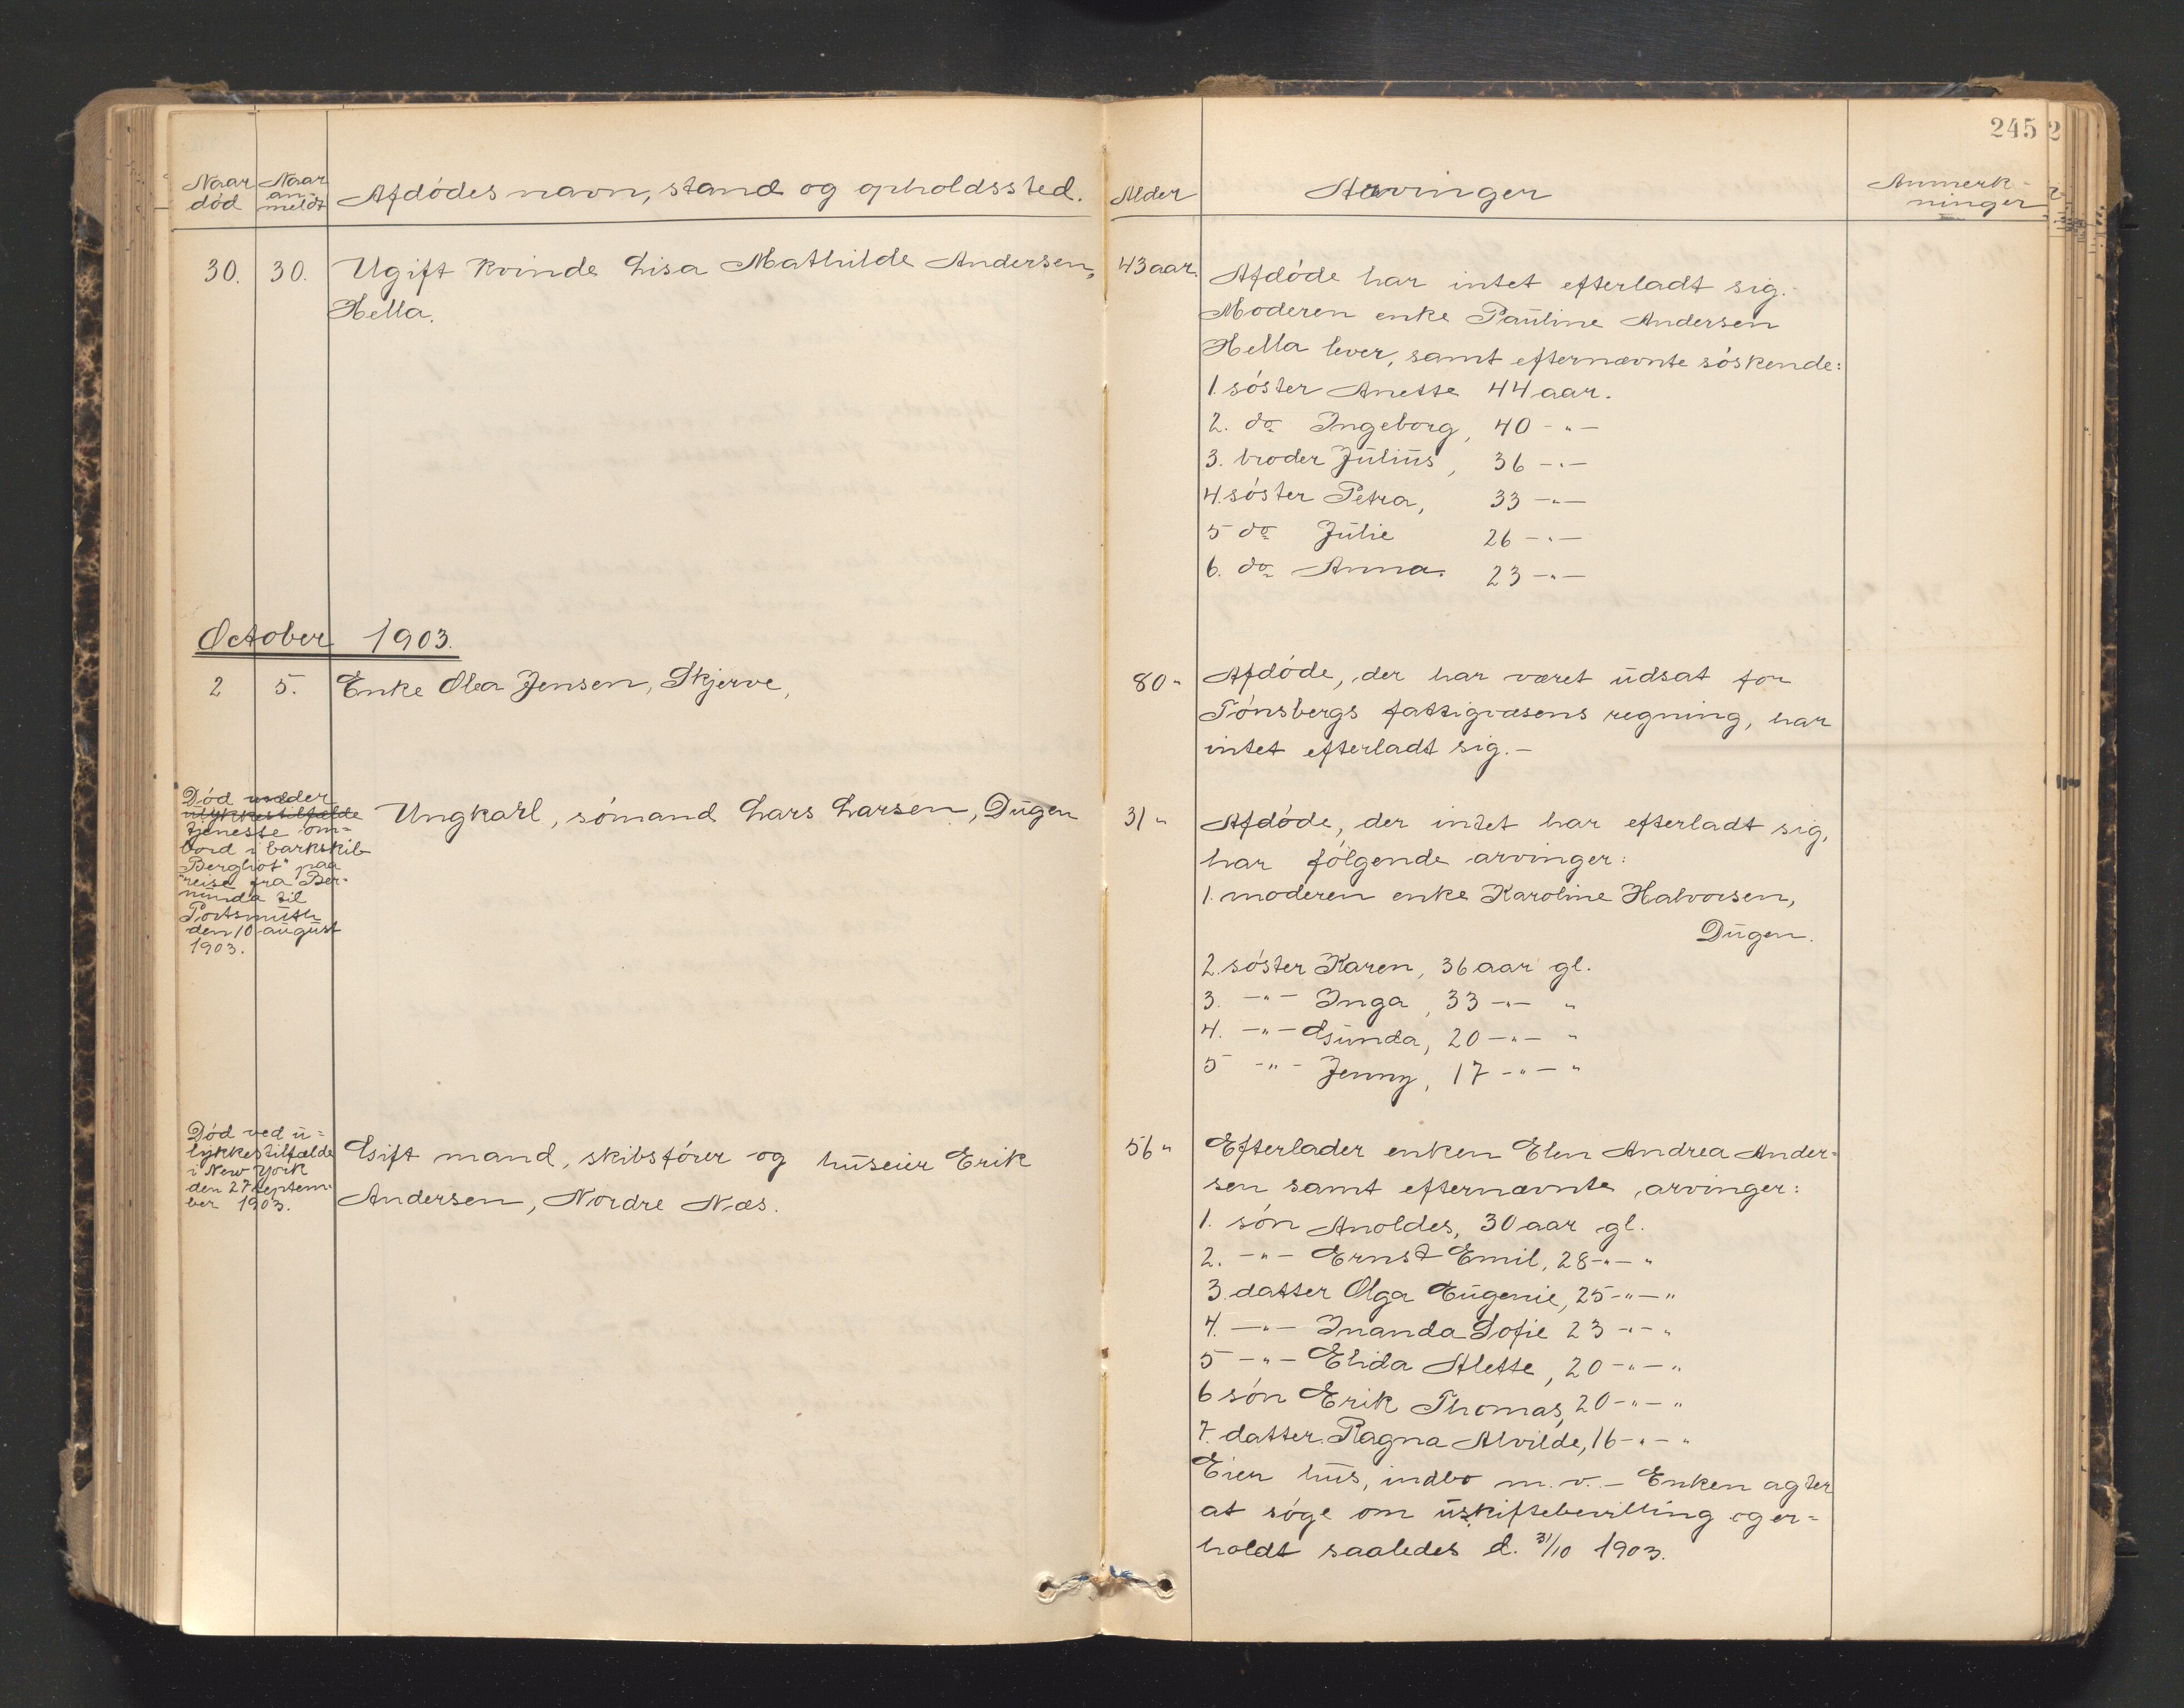 245
2
Naar död
Naar an-meldt
Afdödes navn, stand og opholdssted.
Alder
Arvinger
Anmerk-
ninger
30. 30. Ugift kvinde Lisa Mathilde Andersen,
Hella.
43 aar.
Afdöde har intet efterladt sig.
Moderen enke Pauline Andersen
Hella lever, samt efternævnte söskende:
1. söster Anette 44 aar.
2. do Ingeborg, 40 -"-
3. broder Julius, 36 -"-
4. söster Petra, 33 -"-
5 do Julie 26 -"-
6. do Anna. 23 -"-
October 1903.
2 5. Enke Olea Jensen, Skjerve,
80 "
Afdöde, der har været udsat for
Tönsbergs fattigvæsens regning, har
intet efterladt sig. -
Död under
ulykkestilfælde
tjeneste om=
bord i barkskib
"Bergliot" paa
reise fra Ber-
munda til
Portsmuth
den 10 august
1903.
Ungkarl, sömand Lars Larsen, Dugen
31 "
Afdöde, der intet har efterladt sig,
har fölgende arvinger:
1. moderen enke Karoline Halvorsen,
Dugen.
2. söster Karen, 36 aar gl.
3. -"- Inga, 33 -"- "
4. -"- Gunda, 20 -"- "
5 -"- Jenny, 17 -"- "
Död ved u=
lykkestilfælde
i New York
den 27 septem-
ber 1903.
Gift mand, skibsförer og huseier Erik
Andersen, Nordre Næs.
56 "
Efterlader enken Elen Andrea Ander=
sen samt efternævnte arvinger:
1. sön Anoldes, 30 aar gl.
2. -"- Ernst Emil, 28 -"- "
3. datter Olga Eugenie, 25 -"- "
4. -"- Inanda Sofie 23 -"- "
5 -"- Elida Alette, 20 -"- "
6 sön Erik Thomas, 20 -"- "
7. datter Ragna Alvilde, 16 -"- "
Eier hus, indbo m.v. - Enken agter
at söge om uskiftebevilling og er=
holdt saaledes d. 31/10 1903.